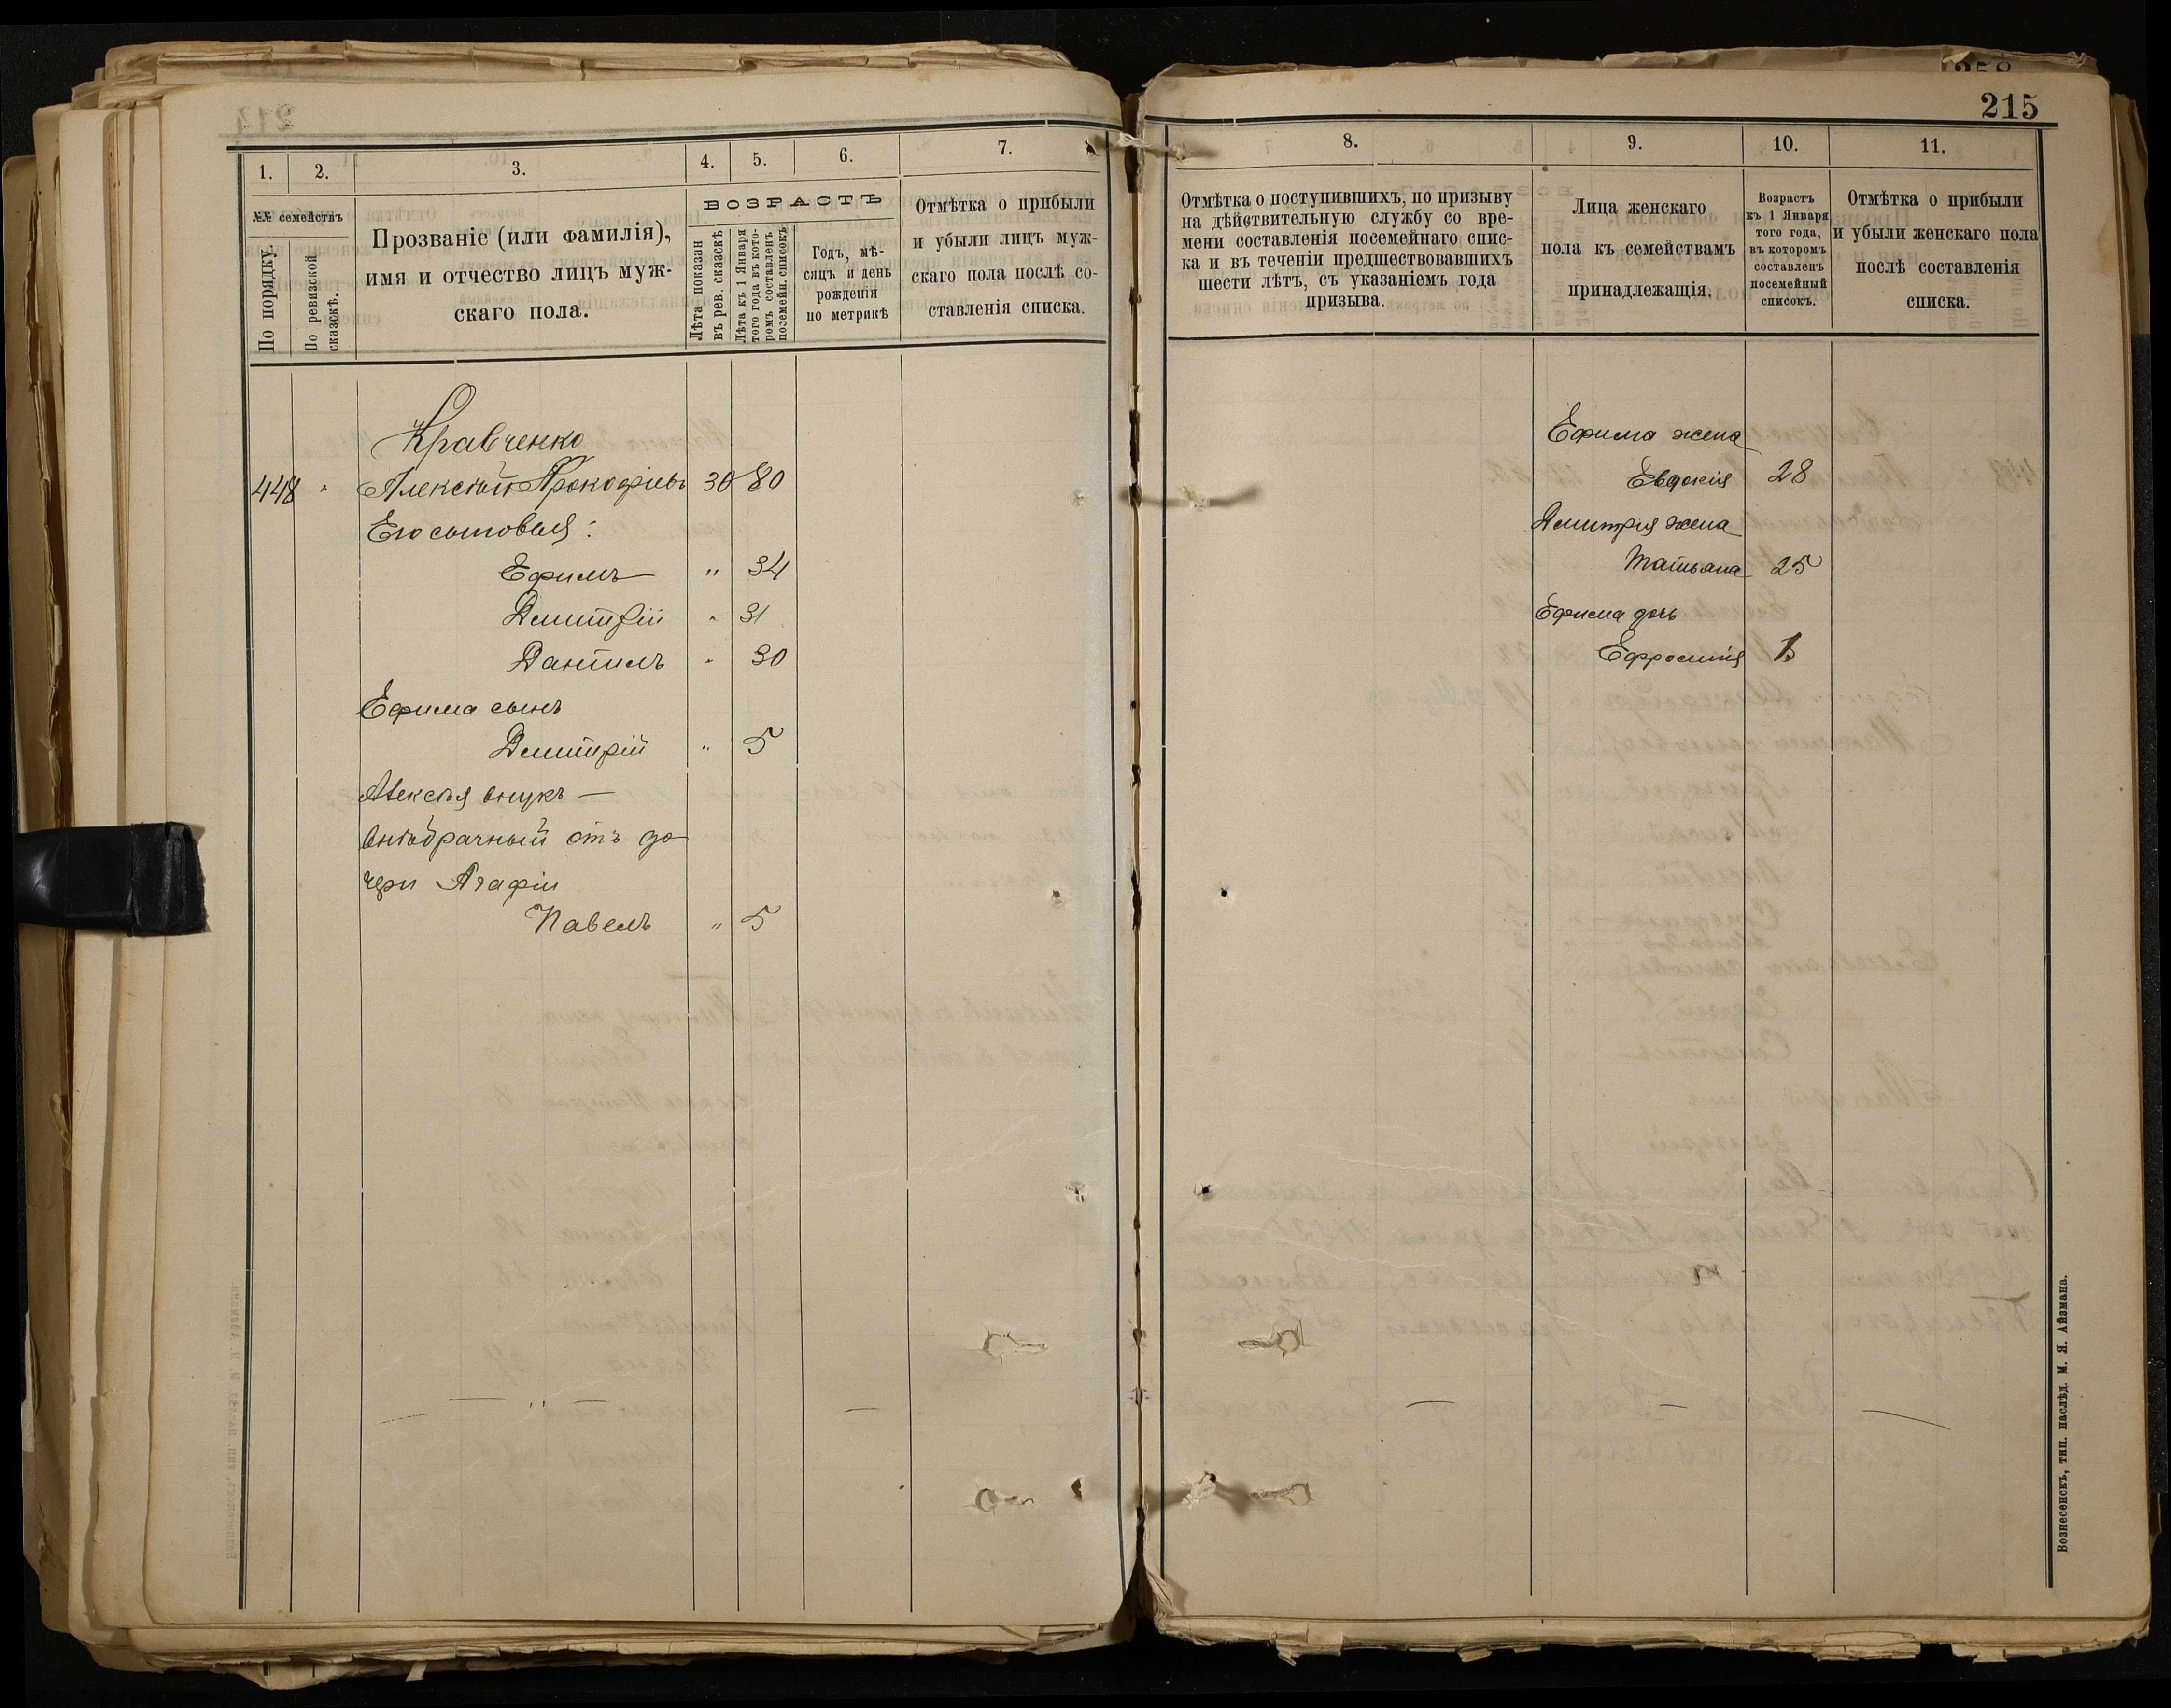 215
1.
2.
3.
4.
5.
6.
7.
№№ семействъ
По порядку.
По ревизской сказскѣ.
Прозваніе (или фамилія),
имя и отчество лицъ муж-
скаго пола.
ВОЗРАСТЪ
Лѣта показан
въ рев. сказскѣ
Лѣта къ 1 Января
того года въ кото-
ромъ составленъ
посемейн. списокъ
Годъ, мѣ-
сяцъ и день
рожденія
по метрикѣ
Отмѣтка о прибыли
и убыли лицъ муж-
скаго пола послѣ со-
ставленія списка.
Кравченко
448 " Алексѣй Прокофіевъ 30 80
Его сыновья:
Ефимъ " 34
Дмитрій " 31
Даніилъ " 30
Ефима сынъ
Дмитрій " 5
Алексѣя внукъ —
внѣбрачный отъ до
чери Агафіи
Павелъ " 5
8.
9.
10.
11.
Отмѣтка о поступившихъ, по призыву
на дѣйствительную службу со вре-
мени составленія посемейнаго спис-
ка и въ теченіи предшествовавшихъ
шести лѣтъ, съ указаніемъ года
призыва.
Лица женскаго
пола къ семействамъ
принадлежащія.
Возрастъ
къ 1 Января
того года,
въ которомъ
составленъ
посемейный
списокъ.
Отмѣтка о прибыли
и убыли женскаго пола
послѣ составленія
списка.
Ефима жена
Евдокія 28
Дмитрія жена
Татьяна 25
Ефима дочь
Ефросинія
Вознесенскъ, тип. наслѣд. М. Я. Айзмана.